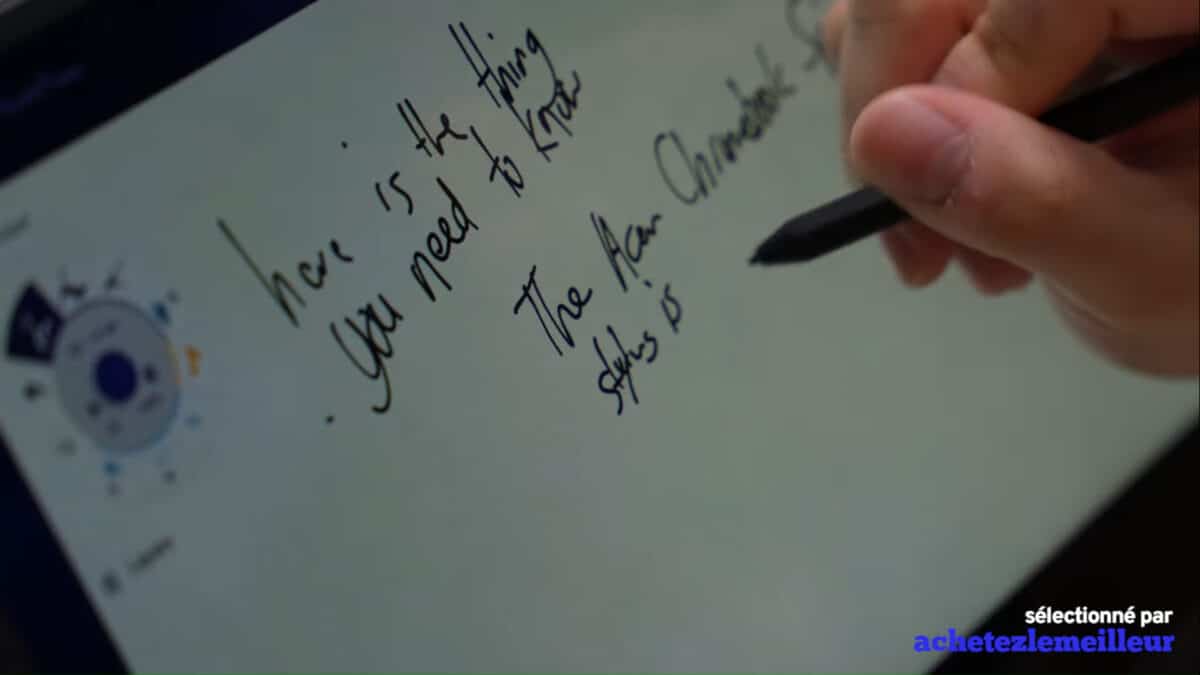 here is the thing
you need to know
The Acer Chromebook
stylus is
sélectionné par
achetezlemeilleur